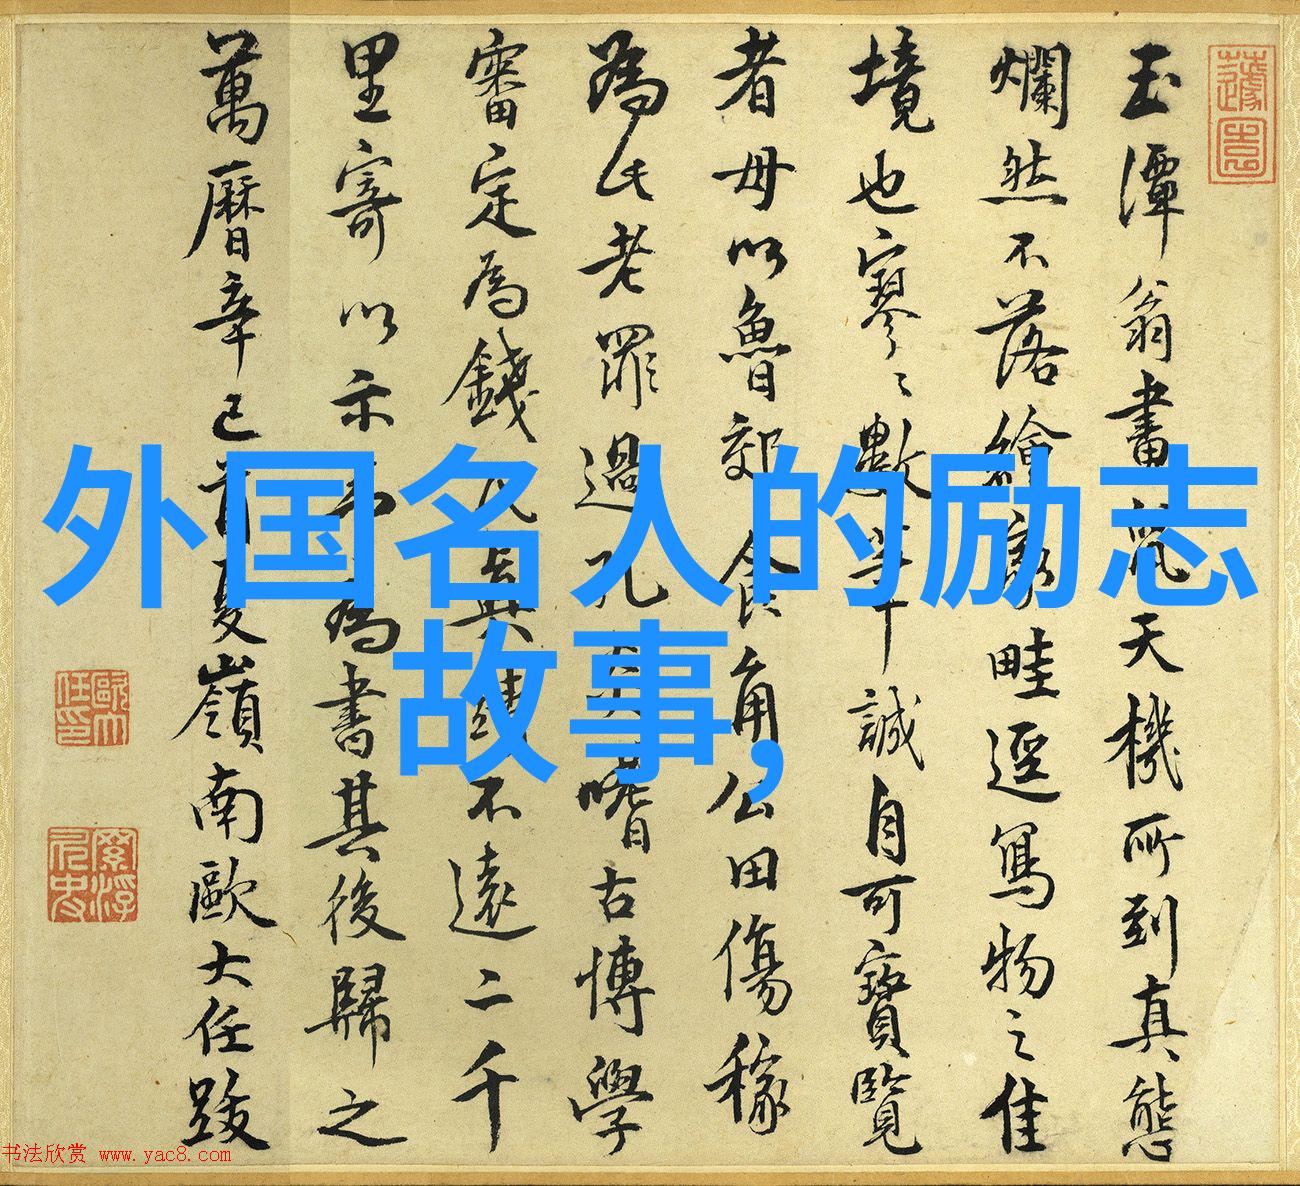 外国名人的励志
故事,
玉潭翁畫鼠天機所到真態
爛然不落繪家畦逕寫物之佳
境也寥〻數筆誠自可寶覽
者毋以魯郊食角公田傷稼
為此老罪過孔炎嗜古博學
審定為錢氏真蹟不遠二千
里寄以示予為書其後歸之
萬曆辛巳首夏嶺南歐大任跋
歐大任印
书法欣赏 www.yac8.com